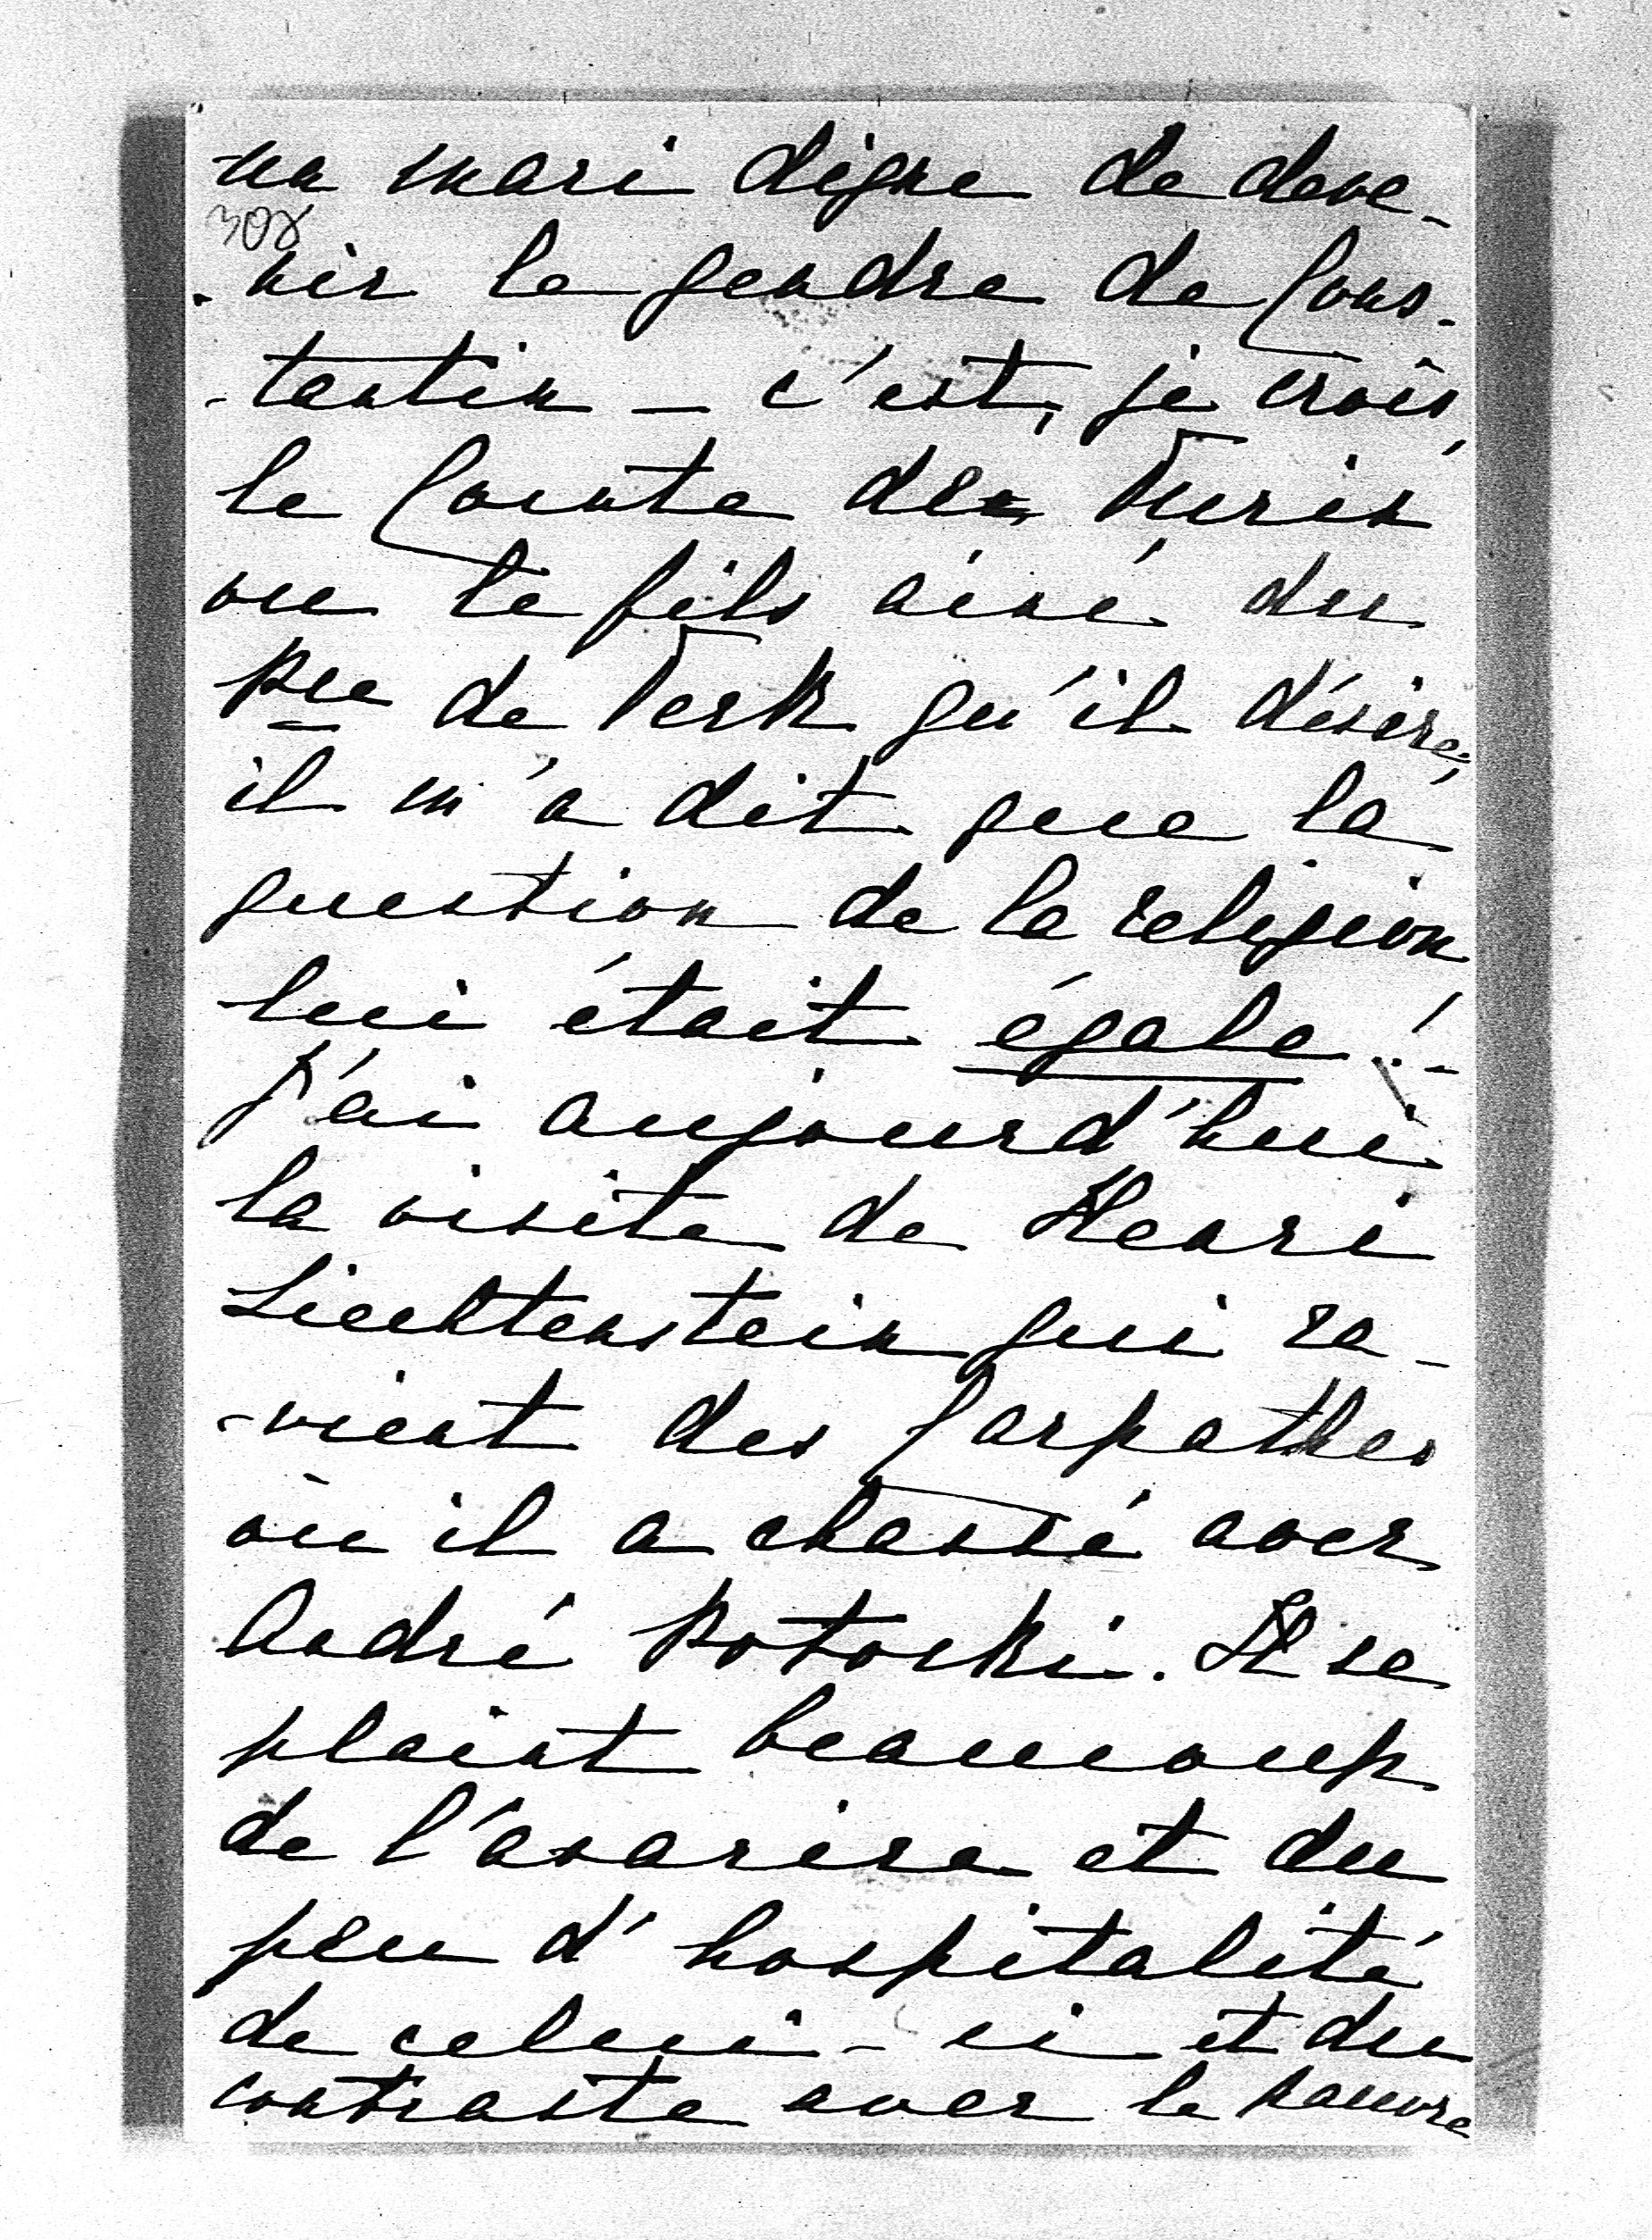 un mari digne de deve-
308
-nir le gendre de Cons-
-tantin - c'est, je crois,
le Comte de Turin
ou le fils aîné du
Pce de Teck qu'il désire;
il m'a dit que la
question de la religion
lui était égale!.. -
J'ai aujourd'hui
la visite de Henri
Liechtenstein qui re-
-vient des Carpathes
où il a chassé avec
André Potocki. Il se
plaint beaucoup
de l'avarice et du
peu d'hospitalité
de celui-ci et du
contraste avec le pauvre